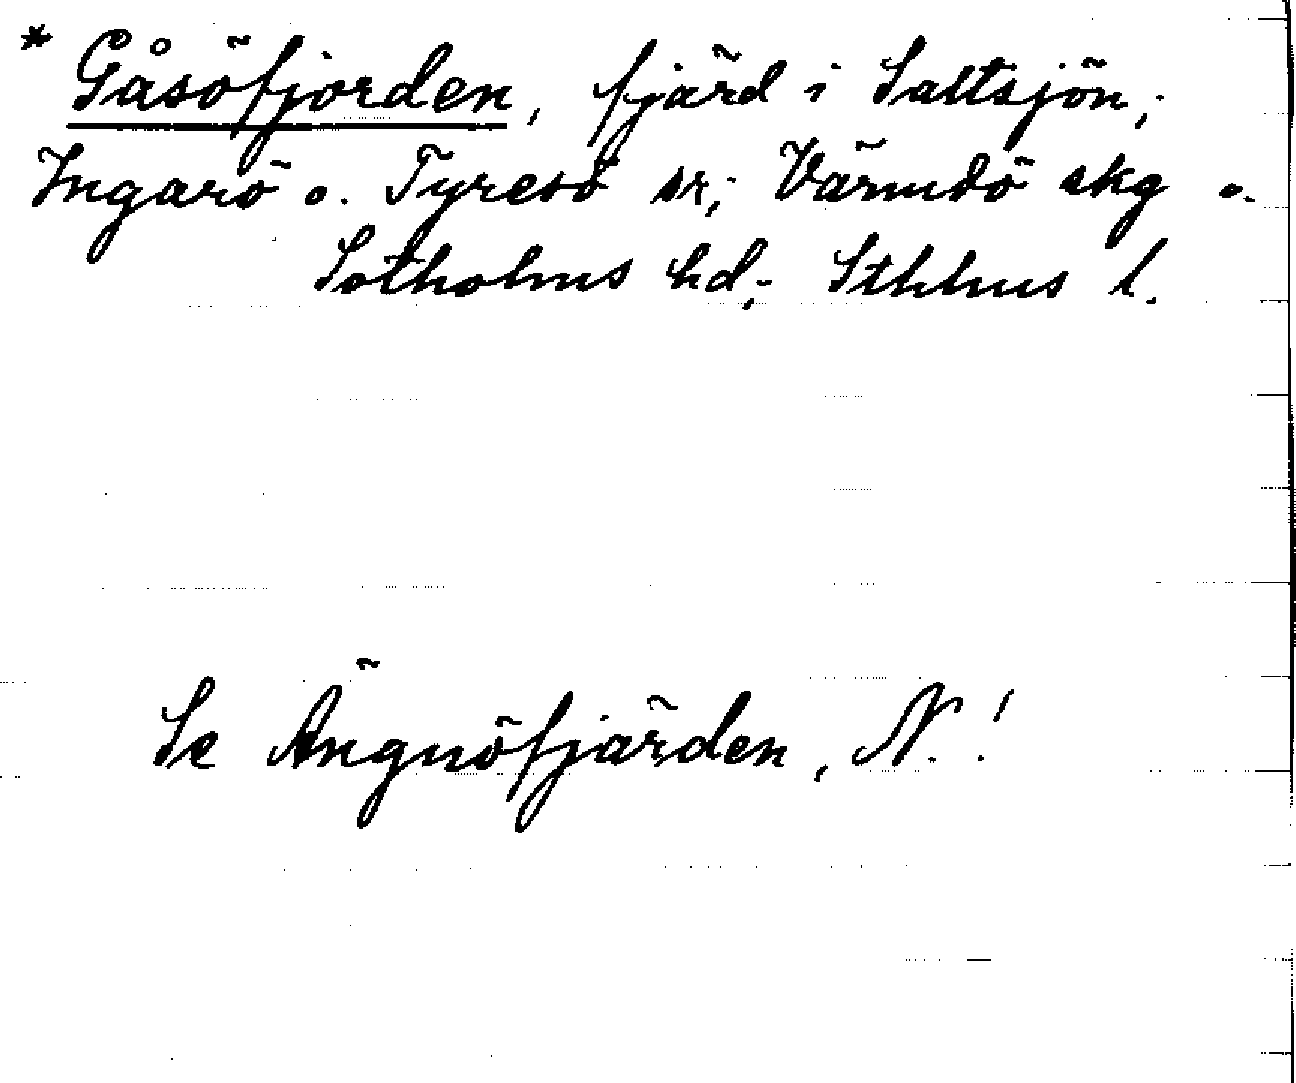 * Gåsöfjorden, fjärd i Saltsjön,;
Ingarö o. Tyresö sr,; Värmdö skg o.
Sotholms hd,; Sthlms l.
Se Ängnöfjärden, N.!